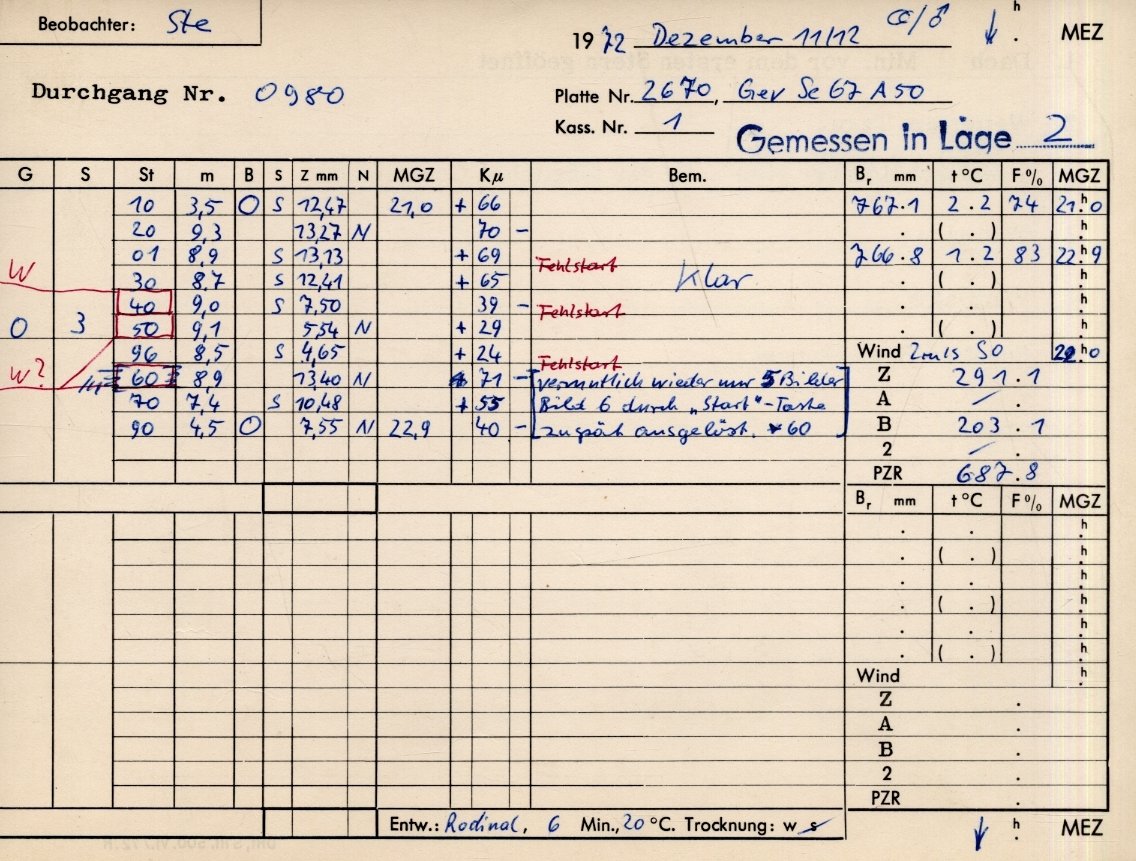 Beobachter: Ste
1972 Dezember 11/12 h . MEZ
Durchgang Nr. 0980
Platte Nr. 2670, Gev Sc 67 A 50
Kass. Nr. 1
Gemessen in Lage 2
G S St m B S Z mm N MGZ Kµ Bem. Br mm t °C F % MGZ
10 3,5 O S 12,47 21,0 + 66 767.1 2.2 74 21h.0
20 9,3 13,27 N 70 - . ( . ) h.
01 8,9 S 13,13 + 69 Fehlstart 766.8 1.2 83 22h.9
W 30 8,7 S 12,41 + 65 Klar . ( . ) h.
40 9,0 S 7,50 39 - Fehlstart . . h.
O 3 50 9,1 5,54 N + 29 . ( . ) h
96 8,5 S 4,65 + 24 Fehlstart Wind 2m/s SO 22h.0
W? 60 8,9 13,40 N 71 - vermutlich wieder nur 5 Bilder Z 291.1
70 7,4 S 10,48 + 55 Bild 6 durch „Start"-Taste A / .
90 4,5 O 7,55 N 22,9 40 - zu spät ausgelöst. * 60 B 203.1
2 / .
PZR 687.8
Br mm t °C F % MGZ
. . h.
. ( . ) h.
. . h.
. ( . ) h.
. . h.
. ( . ) h.
Wind h.
Z .
A .
B .
2 .
PZR .
Entw.: Rodinal, 6 Min., 20 °C. Trocknung: w s h . MEZ